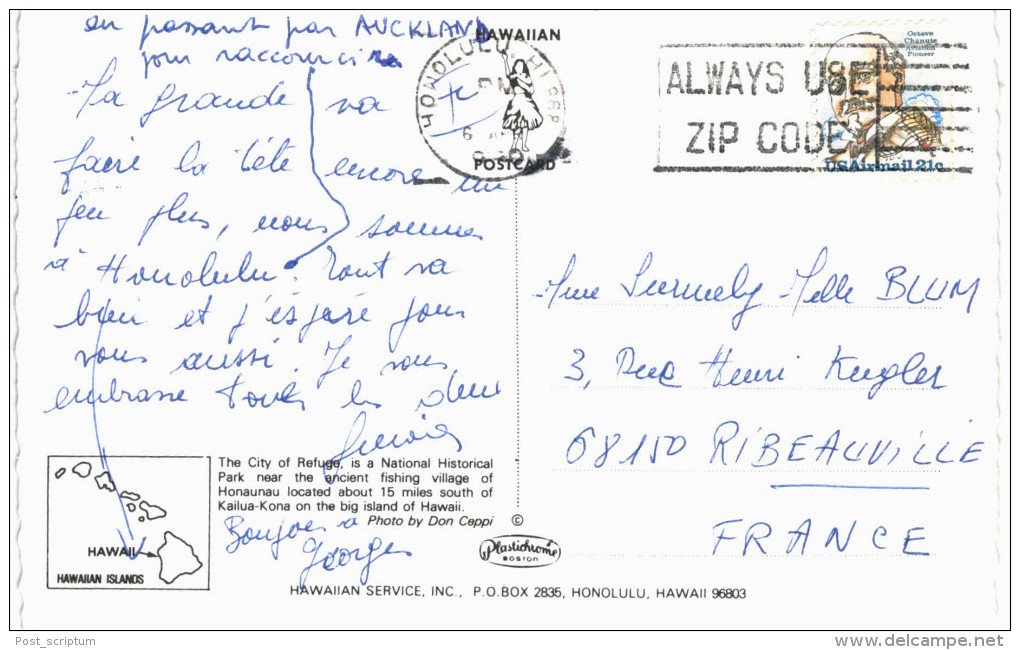 en passant par AUCKLAND
pour raccourcir
La grande va
faire la tête encore un
peu plus, nous sommes
à Honolulu. Tout va
bien et j'éspère pour
vous aussi. Je vous
embrasse toutes les deux
Bonjour à
Georges
HAWAIIAN
POSTCARD
HONOLULU, HI
PM
6
ALWAYS USE
ZIP CODE
Octave
Chanute
Aviation
Pioneer
USAirmail 21c
Mme Surmely Melle BLUM
3, Rue Henri Kugler
68150 RIBEAUVILLÉ
FRANCE
The City of Refuge, is a National Historical
Park near the ancient fishing village of
Honaunau located about 15 miles south of
Kailua-Kona on the big island of Hawaii.
Photo by Don Ceppi ©
HAWAII
HAWAIIAN ISLANDS
Plastichrome
BOSTON
HAWAIIAN SERVICE, INC., P.O.BOX 2835, HONOLULU, HAWAII 96803
Post_scriptum
delcampe.net